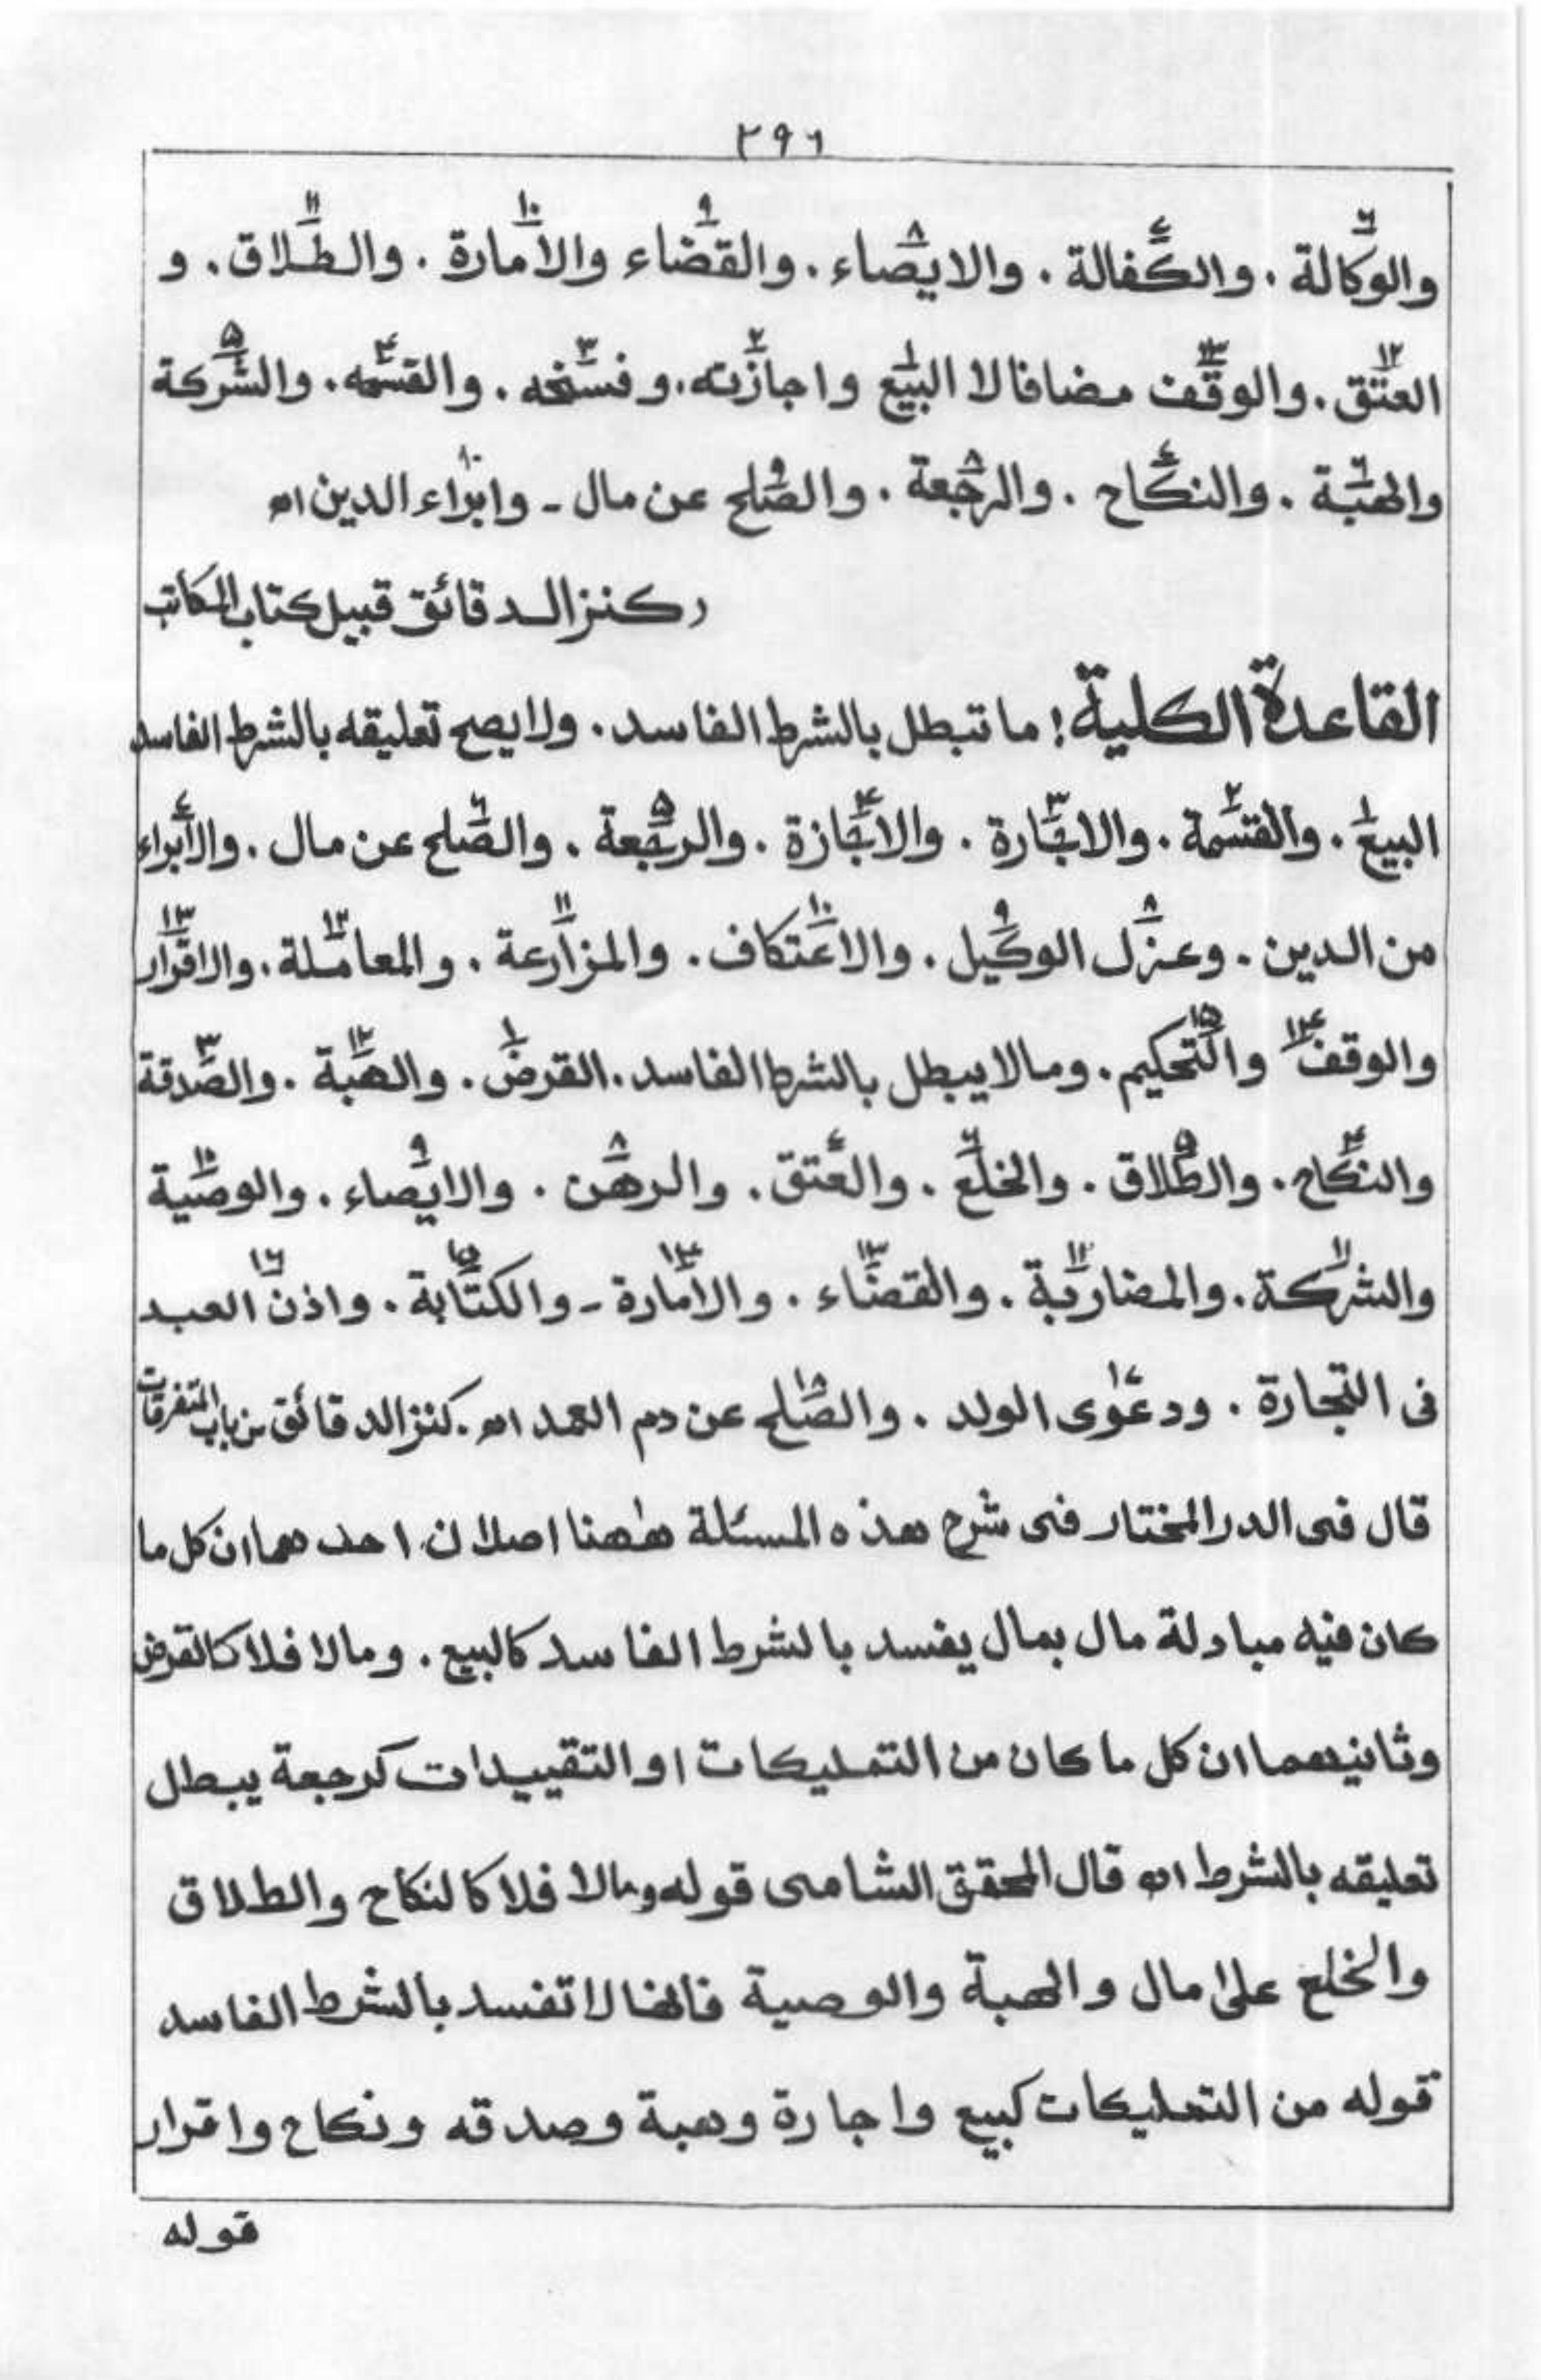 ٢٩٦
والوكالة . والكفالة . والايصاء . والقضاء والامارة . والطلاق . و
العتق . والوقف مضافا لا البيع واجازته . وفسخه . والقسمه . والشركة
والهبة . والنكاح . والرجعة . والصلح عن مال ـ وابراء الدين اھ
ركنز الدقائق قبيل كتاب المكاتب
القاعدة الكلية ! ما تبطل بالشرط الفاسد . ولا يصح تعليقه بالشرط الفاسد
البيع . والقسمة . والاجارة . والاجازة . والرجعة . والصلح عن مال . والابراء
من الدين . وعزل الوكيل . والاعتكاف . والمزارعة . والمعاملة . والاقرار
والوقف والتحكيم . ومالا يبطل بالشرط الفاسد . القرض . والهبة . والصدقة
والنكاح . والطلاق . والخلع . والعتق . والرهن . والايصاء . والوصية
والشركة . والمضاربة . والقضاء . والامارة ـ والكتابة . واذن العبد
فى التجارة . ودعوى الولد . والصلح عن دم العمد اھ . كنز الدقائق من باب المتفرقات
قال فى الدر المختار فى شرح هذه المسئلة ههنا اصلان احدهما ان كل ما
كان فيه مبادلة مال بمال يفسد بالشرط الفاسد كالبيع . ومالا فلا كالقرض
وثانيهما ان كل ما كان من التمليكات او التقييدات كرجعة يبطل
تعليقه بالشرط اھ قال المحقق الشامى قوله ومالا فلا كالنكاح والطلاق
والخلع على مال والهبة والوصية فانها لا تفسد بالشرط الفاسد
قوله من التمليكات كبيع واجارة وهبة وصدقه ونكاح واقرار
قوله